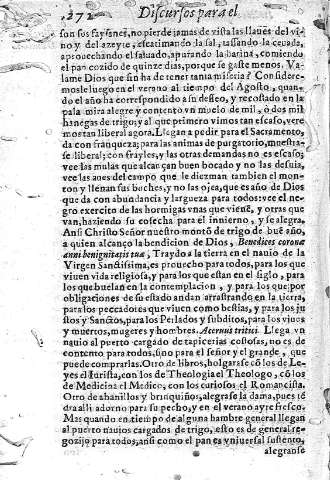 272 Discursos para el
son sos fayśance, no pierde jamas de vista las llaues del vi-
no y del azeyte, escatimando la sal, tassando la ceuada,
aprouechando el saluado, apurando la harina, comiendo
el pan cozido de quinze dias, porque se gaste menos. Va-
lame Dios que fin ha de tener tanta miseria? Considere-
moslé luego en el verano al tiempo del Agosto, quan-
do el año ha correspondido a su deseo, y recostado en la
pala mira alegre y contento vn muelo de mil, o dos mil
hanegas de trigo; y al que primero vimos tan escaso, vere
mos tan liberal agora. Llegan a pedir para el Sacramento,
da con franqueza; para las animas de purgatorio, muestra-
se liberal; con frayles, y las otras demandas no es escaso;
vee las mulas que alcançan buen bocado y no las desuia,
vee las aues del campo que le diezman tambien el mon-
ton y llenan sus buches, y no las ojea, que es año de Dios
que da con abundancia y largueza para todos: vee el ne-
gro exercito de las hormigas vnas que vienē, y otras que
van, haziendo su cosecha para el inuierno, y se alegra.
Ansi Christo Señor nuestro montō de trigo de buē año,
a quien alcanço la bendicion de Dios, Benedices coronæ
anni benignitatis tuæ, Traydo a la tierra en el nauio de la
Virgen Santissima, es prouecho para todos, para los que
viuen vida religiosa, y para los que estan en el siglo, para
los que buelan en la contemplacion, y para los que por
obligaciones de su estado andan arrastrando en la tierra,
para los peccadores que viuen como bestias, y para los ju
stos y Sanctos, para los Pelados y subditos, para los viuos
y muertos, mugeres y hombres. Aceruus tritici. Llega vn
nauio al puerto cargado de tapicerias costosas, no es de
contento para todos, sino para el señor y el grande, que
puede comprarlas. Otro de libros, holgarase cō los de Le-
yes el Iurista, con los de Theologia el Theologo, cō los
de Medicina el Medico, con los curiosos el Romancista.
Otro de abanillos y brinquiños, alegrase la dama, pues tē
dra alli adorno para su pecho, y en el verano ayre fresco.
Mas quando en tiempo de alguna hambre general llegan
al puerto nauios cargados de trigo, esto es de general re-
gozijo para todos, ansi como el pan es vniuersal sustento,
alegranse